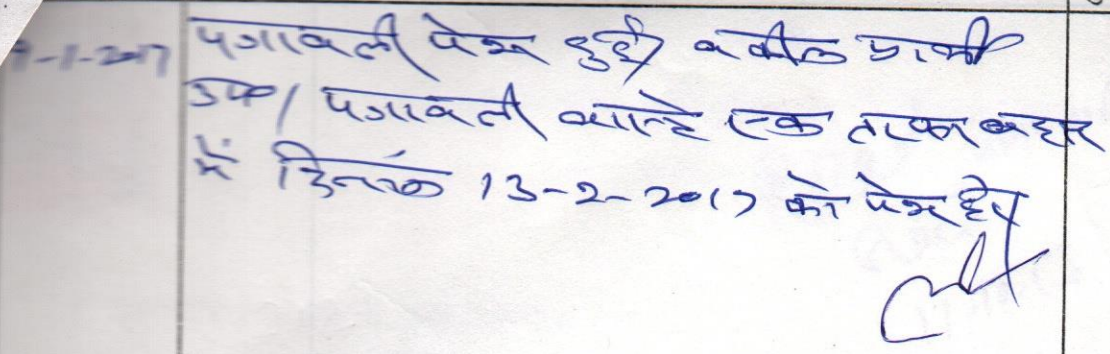 9-1-2017 पत्रावली पेश हुई। वकील प्रार्थी
उप। पत्रावली वास्ते एक तरफा बहस
में दिनांक 13-2-2017 को पेश हो।